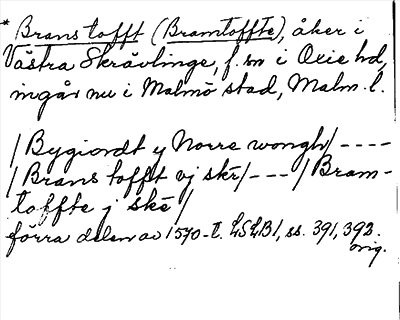 * Brans tofft (Bramtoffte), åker i
Västra Skrävlinge, f. sn i Oxie hd,
ingår nu i Malmö stad, Malm. l.
/Bygiordt y Norre wongh/----
/Brans tofft vj skr/---/Bram-
toffte j ske/
förra delen av 1570-t. LSLB1, ss. 391, 392.
orig.